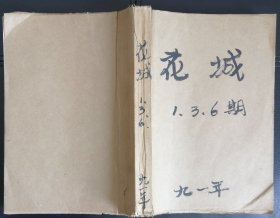 花城
1.3.6期
九一年
花城
1.3.6.
九一年